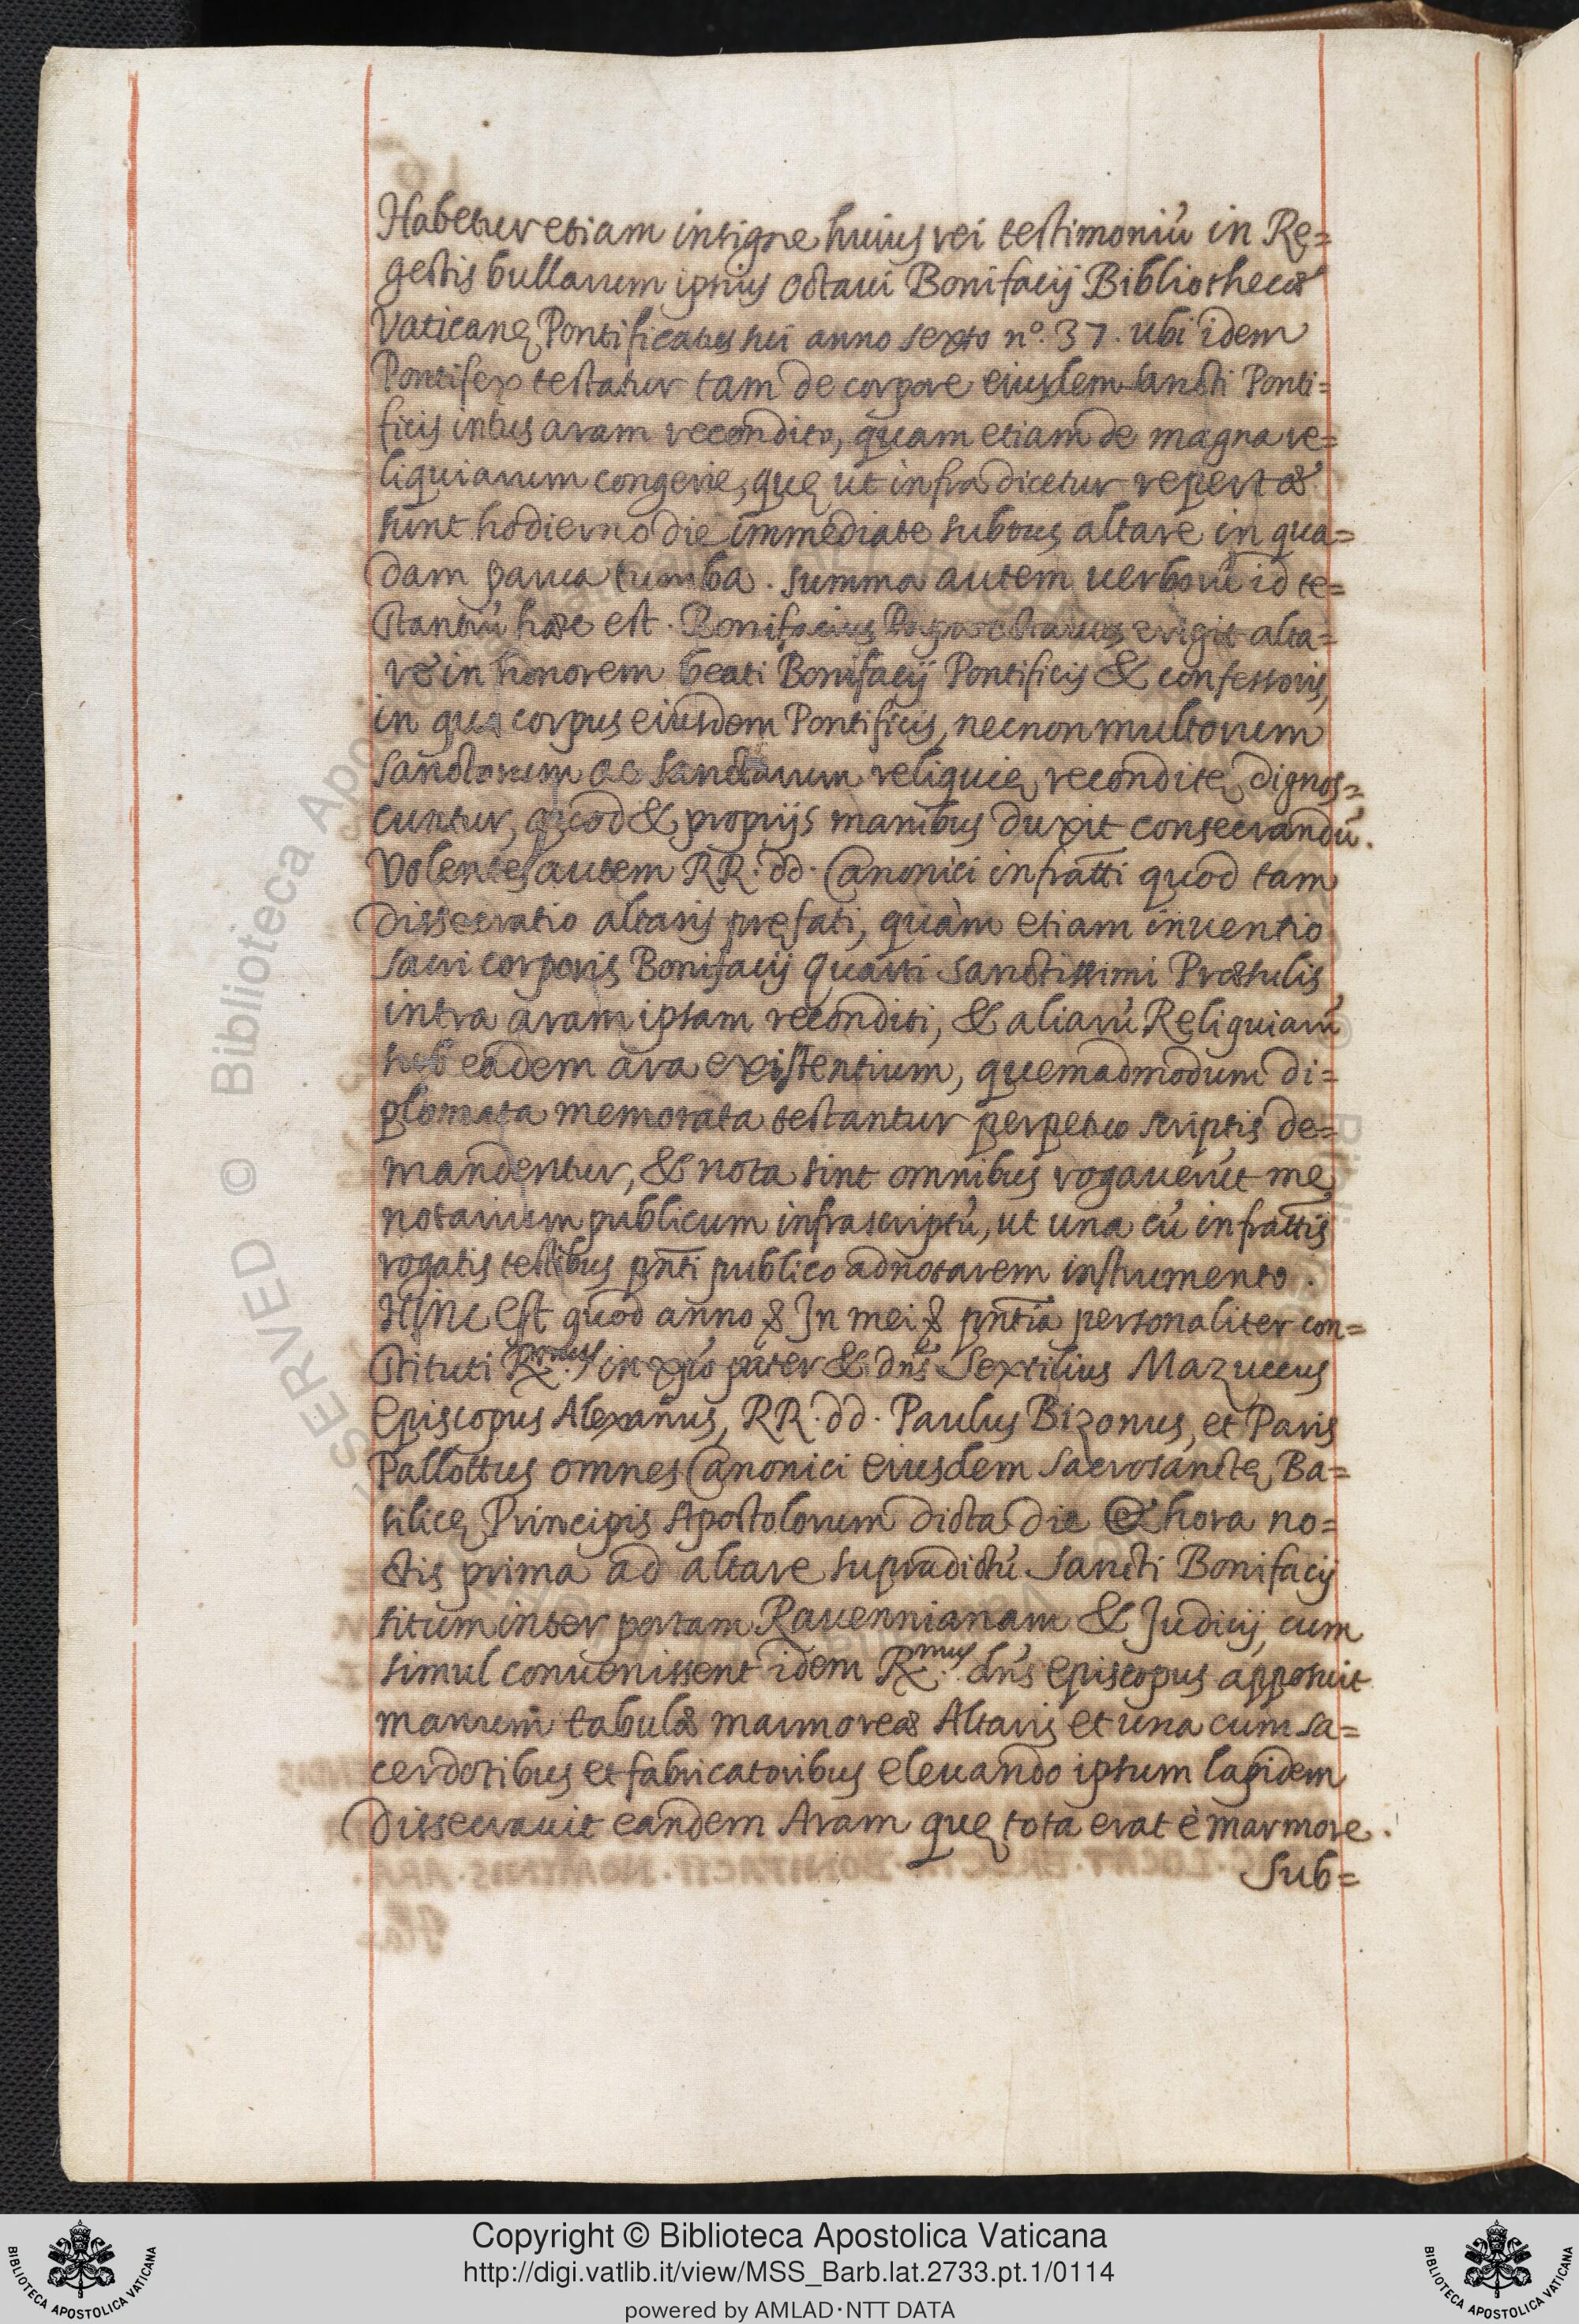 Habetur etiam insigne huius rei testimoniũ in Rę=
gestis bullarum ipsius Octaui Bonifacij Bibliothecæ
Vaticanę Pontificatus sui anno sexto nº. 37. ubi idem
Pontifex testatur tam de corpore eiusdem sancti Ponti=
ficis intus aram recondito, quam etiam de magna re=
liquiarum congerie, quę ut infra dicetur repertæ
sunt hodierno die immediate subtus altare in qua=
dam parua tumba. Summa autem uerborũ id te=
stantiũ hæc est. Bonifacius Papa octauus erigit alta=
re in honorem beati Bonifacij Pontificis & confessoris,
in quo corpus eiusdem Pontificis, necnon multorum
Sanctorum ac Sanctarum reliquię recondite dignos=
cuntur, quod & proprijs manibus duxit consecrandũ.
Volentes autem RR. dd. Canonici infratti quod tam
dissecratio altaris pręfati, quàm etiam inuentio
sacri corporis Bonifacij Quarti Sanctissimi Præsulis
intra aram ipsam reconditi, & aliarũ Reliquiarũ
sub eadem ara existentium, quemadmodum di=
plomata memorata testantur perpetuo scriptis de=
mandentur, & nota sint omnibus rogauerũt me
notarium publicum infrascriptũ, ut una cũ infrattis
rogatis testibus pñti publico adnotarem instrumento.
HINC est quod anno & In mei & pñtia personaliter con=
stituti R.mus in xpõ pater & dñs Sextilius Mazuccus
Episcopus Alexañus, RR. dd. Paulus Bizonus, et Paris
Pallottus omnes Canonici eiusdem Sacrosanctę Ba=
silicę Principis Apostolorum dicta die & hora no=
ctis prima ad altare supradictũ Sancti Bonifacij
situm inter portam Rauennianam & Judicij, cum
simul conuenissent idem R.mus dñs Episcopus apposuit
manum tabulæ marmoreæ Altaris et una cum sa=
cerdotibus et fabricatoribus eleuando ipsum lapidem
dissecrauit eandem Aram quę tota erat è marmore.
Sub=
Copyright © Biblioteca Apostolica Vaticana
http://digi.vatlib.it/view/MSS_Barb.lat.2733.pt.1/0114
powered by AMLAD·NTT DATA
BIBLIOTECA APOSTOLICA VATICANA
BIBLIOTECA APOSTOLICA VATICANA